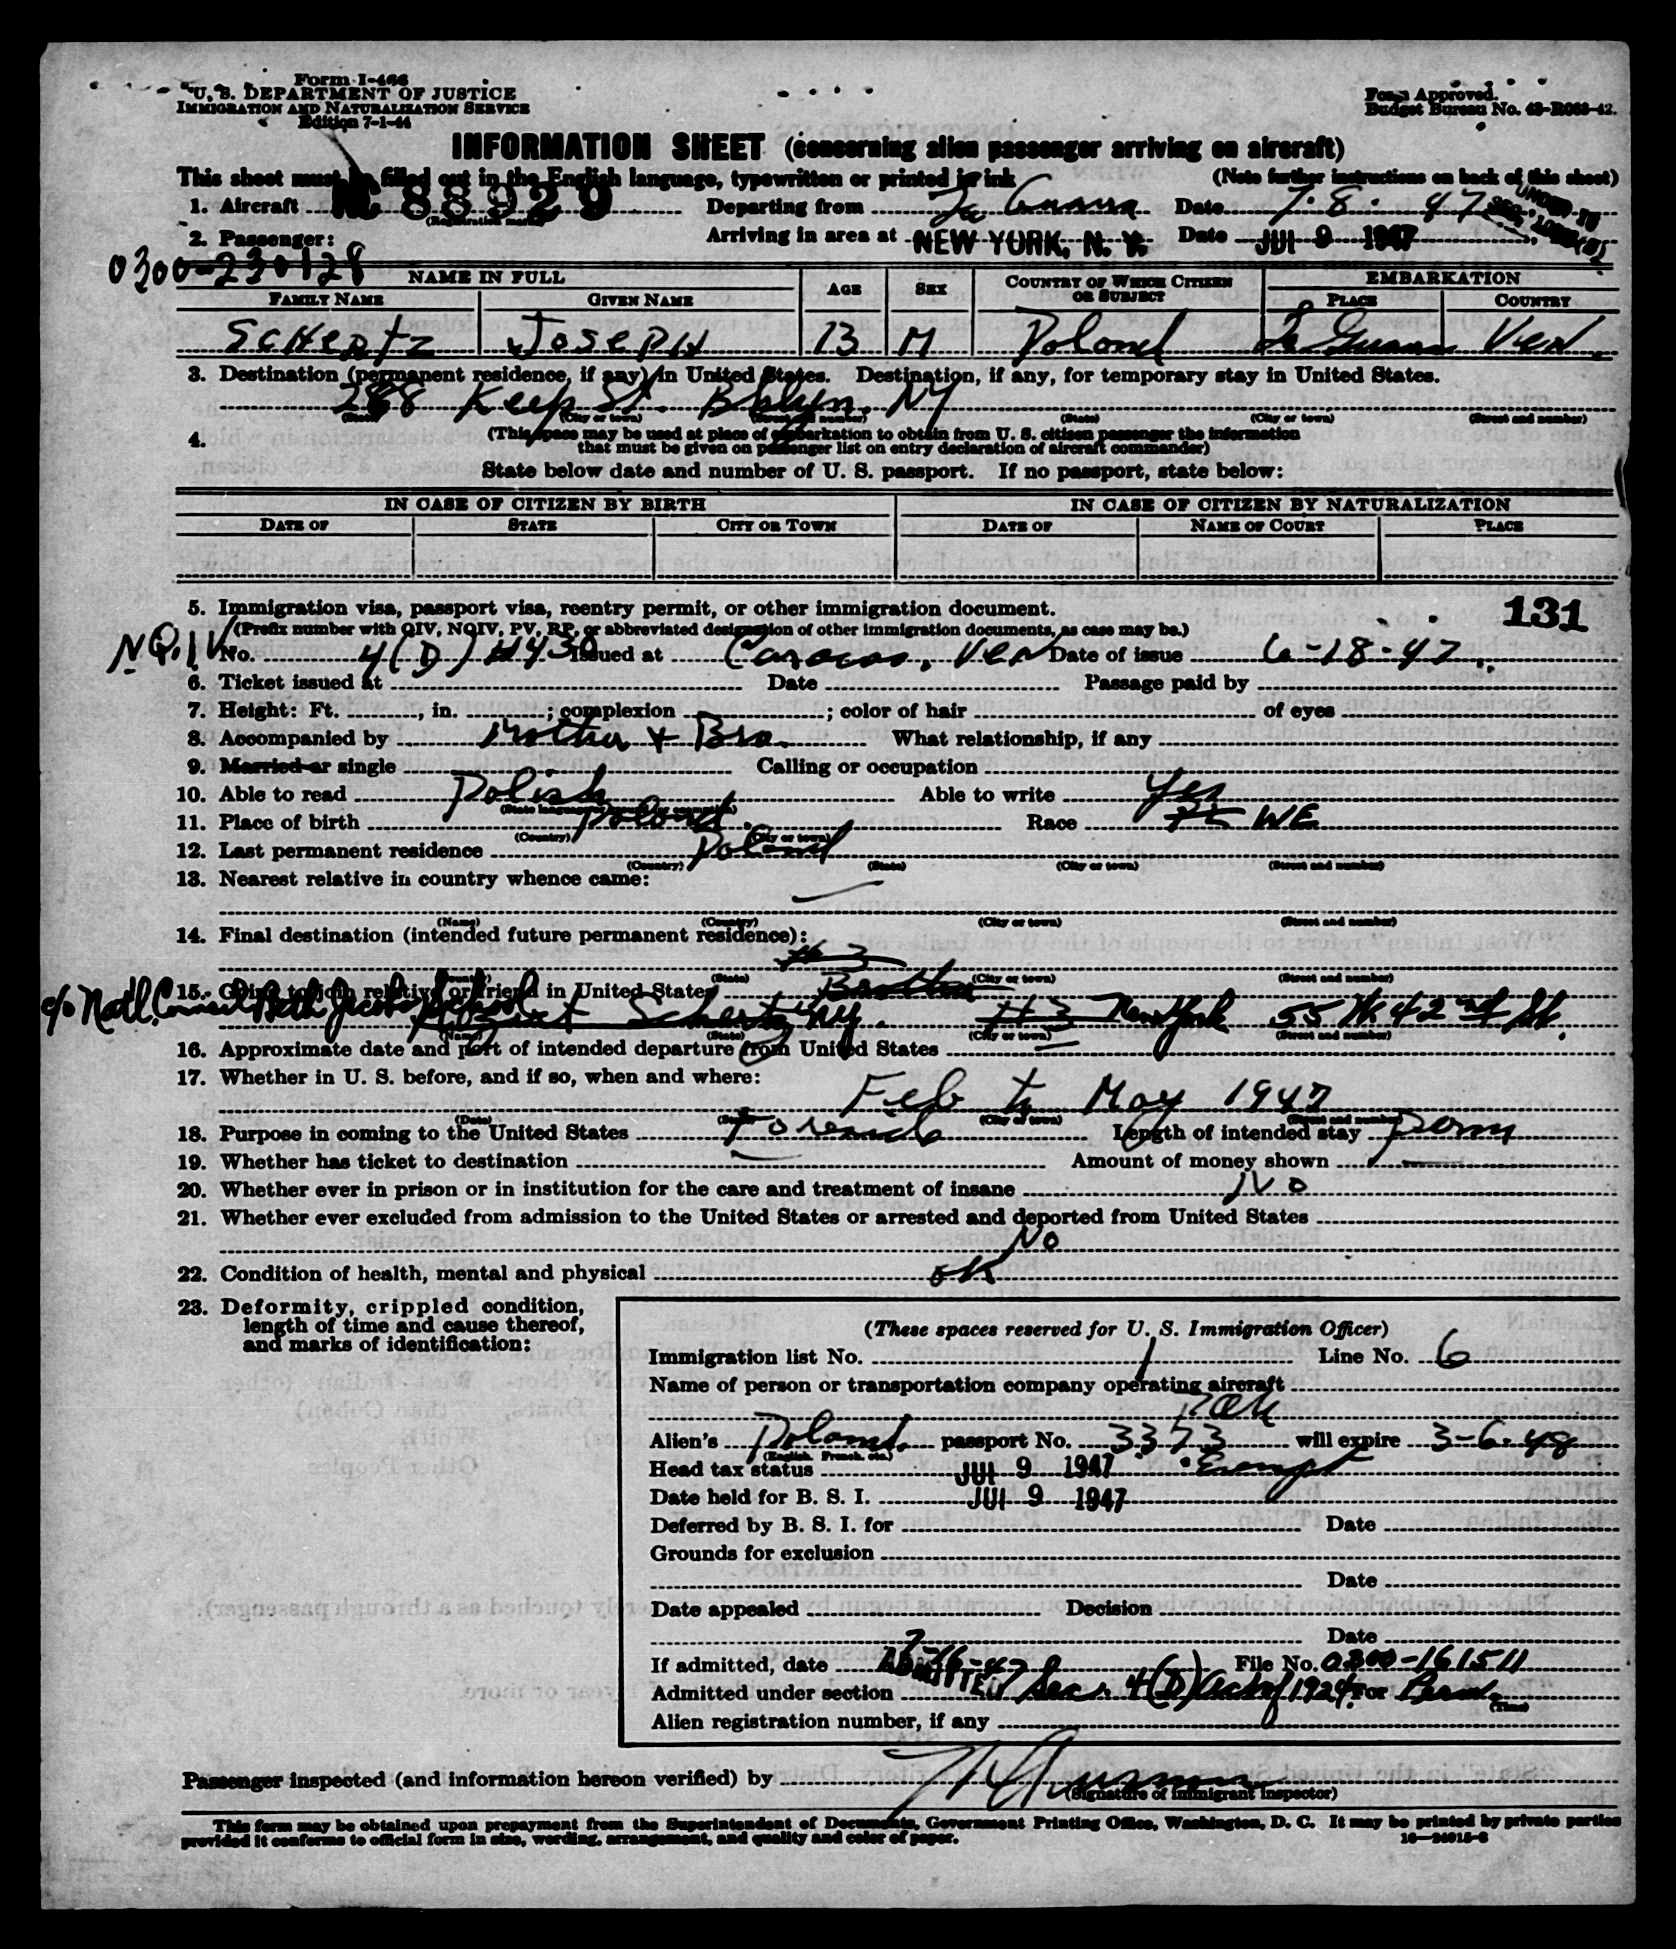 Form I-466
U. S. DEPARTMENT OF JUSTICE
IMMIGRATION AND NATURALIZATION SERVICE
Edition 7-1-44
Form Approved.
Budget Bureau No. 43-R063-42.
INFORMATION SHEET (concerning alien passenger arriving on aircraft)
This sheet must be filled out in the English language, typewritten or printed in ink (Note further instructions on back of this sheet)
1. Aircraft NC 88929 Departing from La Guaira Date 7-8-47
(Registration marks)
UNDER 16
2. Passenger: Arriving in area at NEW YORK, N. Y. Date JUL 9 1947
0300-230128
NAME IN FULL AGE SEX COUNTRY OF WHICH CITIZEN OR SUBJECT EMBARKATION
FAMILY NAME GIVEN NAME PLACE COUNTRY
SCHERTZ JOSEPH 13 M Poland La Guaira Ven.
3. Destination (permanent residence, if any) in United States. Destination, if any, for temporary stay in United States.
288 Keep St. Bklyn. NY
(State) (City or town) (Street and number) (State) (City or town) (Street and number)
4. (This space may be used at place of embarkation to obtain from U. S. citizen passenger the information
that must be given on passenger list on entry declaration of aircraft commander)
State below date and number of U. S. passport. If no passport, state below:
IN CASE OF CITIZEN BY BIRTH IN CASE OF CITIZEN BY NATURALIZATION
DATE OF STATE CITY OR TOWN DATE OF NAME OF COURT PLACE
5. Immigration visa, passport visa, reentry permit, or other immigration document. 131
(Prefix number with QIV, NQIV, PV, RP, or abbreviated designation of other immigration documents, as case may be.)
NQIV No. 4(D) #430 Issued at Caracas, Ven Date of issue 6-18-47
6. Ticket issued at Date Passage paid by
7. Height: Ft. , in. ; complexion ; color of hair of eyes
8. Accompanied by Mother + Bro. What relationship, if any
9. Married or single Calling or occupation
10. Able to read Polish Able to write Yes
11. Place of birth Poland. Race WE
(Country) (City or town)
12. Last permanent residence Poland
(Country) (State) (City or town) (Street and number)
13. Nearest relative in country whence came:
(Name) (Country) (City or town) (Street and number)
14. Final destination (intended future permanent residence):
#3
(Country) (State) (City or town) (Street and number)
15. Going to join relative or friend in United States Brother
c/o Natl. Council Beth Jacob School Schertz N.Y. #3 New York 55 W. 42nd St.
(Name) (State) (City or town) (Street and number)
16. Approximate date and port of intended departure from United States
17. Whether in U. S. before, and if so, when and where:
Feb to May 1947
(Date) (State) (City or town) (Street and number)
18. Purpose in coming to the United States To reside Length of intended stay perm
19. Whether has ticket to destination Amount of money shown
20. Whether ever in prison or in institution for the care and treatment of insane No
21. Whether ever excluded from admission to the United States or arrested and deported from United States
No
22. Condition of health, mental and physical OK
23. Deformity, crippled condition,
length of time and cause thereof,
and marks of identification:
(These spaces reserved for U. S. Immigration Officer)
Immigration list No. 1 Line No. 6
Name of person or transportation company operating aircraft
PAA
Alien's Poland. passport No. 3373 will expire 3-6-48
(English, French, etc.)
Head tax status JUL 9 1947 Exempt
Date held for B. S. I. JUL 9 1947
Deferred by B. S. I. for Date
Grounds for exclusion
Date
Date appealed Decision
Date
If admitted, date 7-16-47 File No. 0300-161511
ADMITTED
Admitted under section Sec. 4(D) Act of 1924 For Perm.
(Time)
Alien registration number, if any
Passenger inspected (and information hereon verified) by
(Signature of immigrant inspector)
This form may be obtained upon prepayment from the Superintendent of Documents, Government Printing Office, Washington, D. C. It may be printed by private parties
provided it conforms to official form in size, wording, arrangement, and quality and color of paper. 16—26915-6